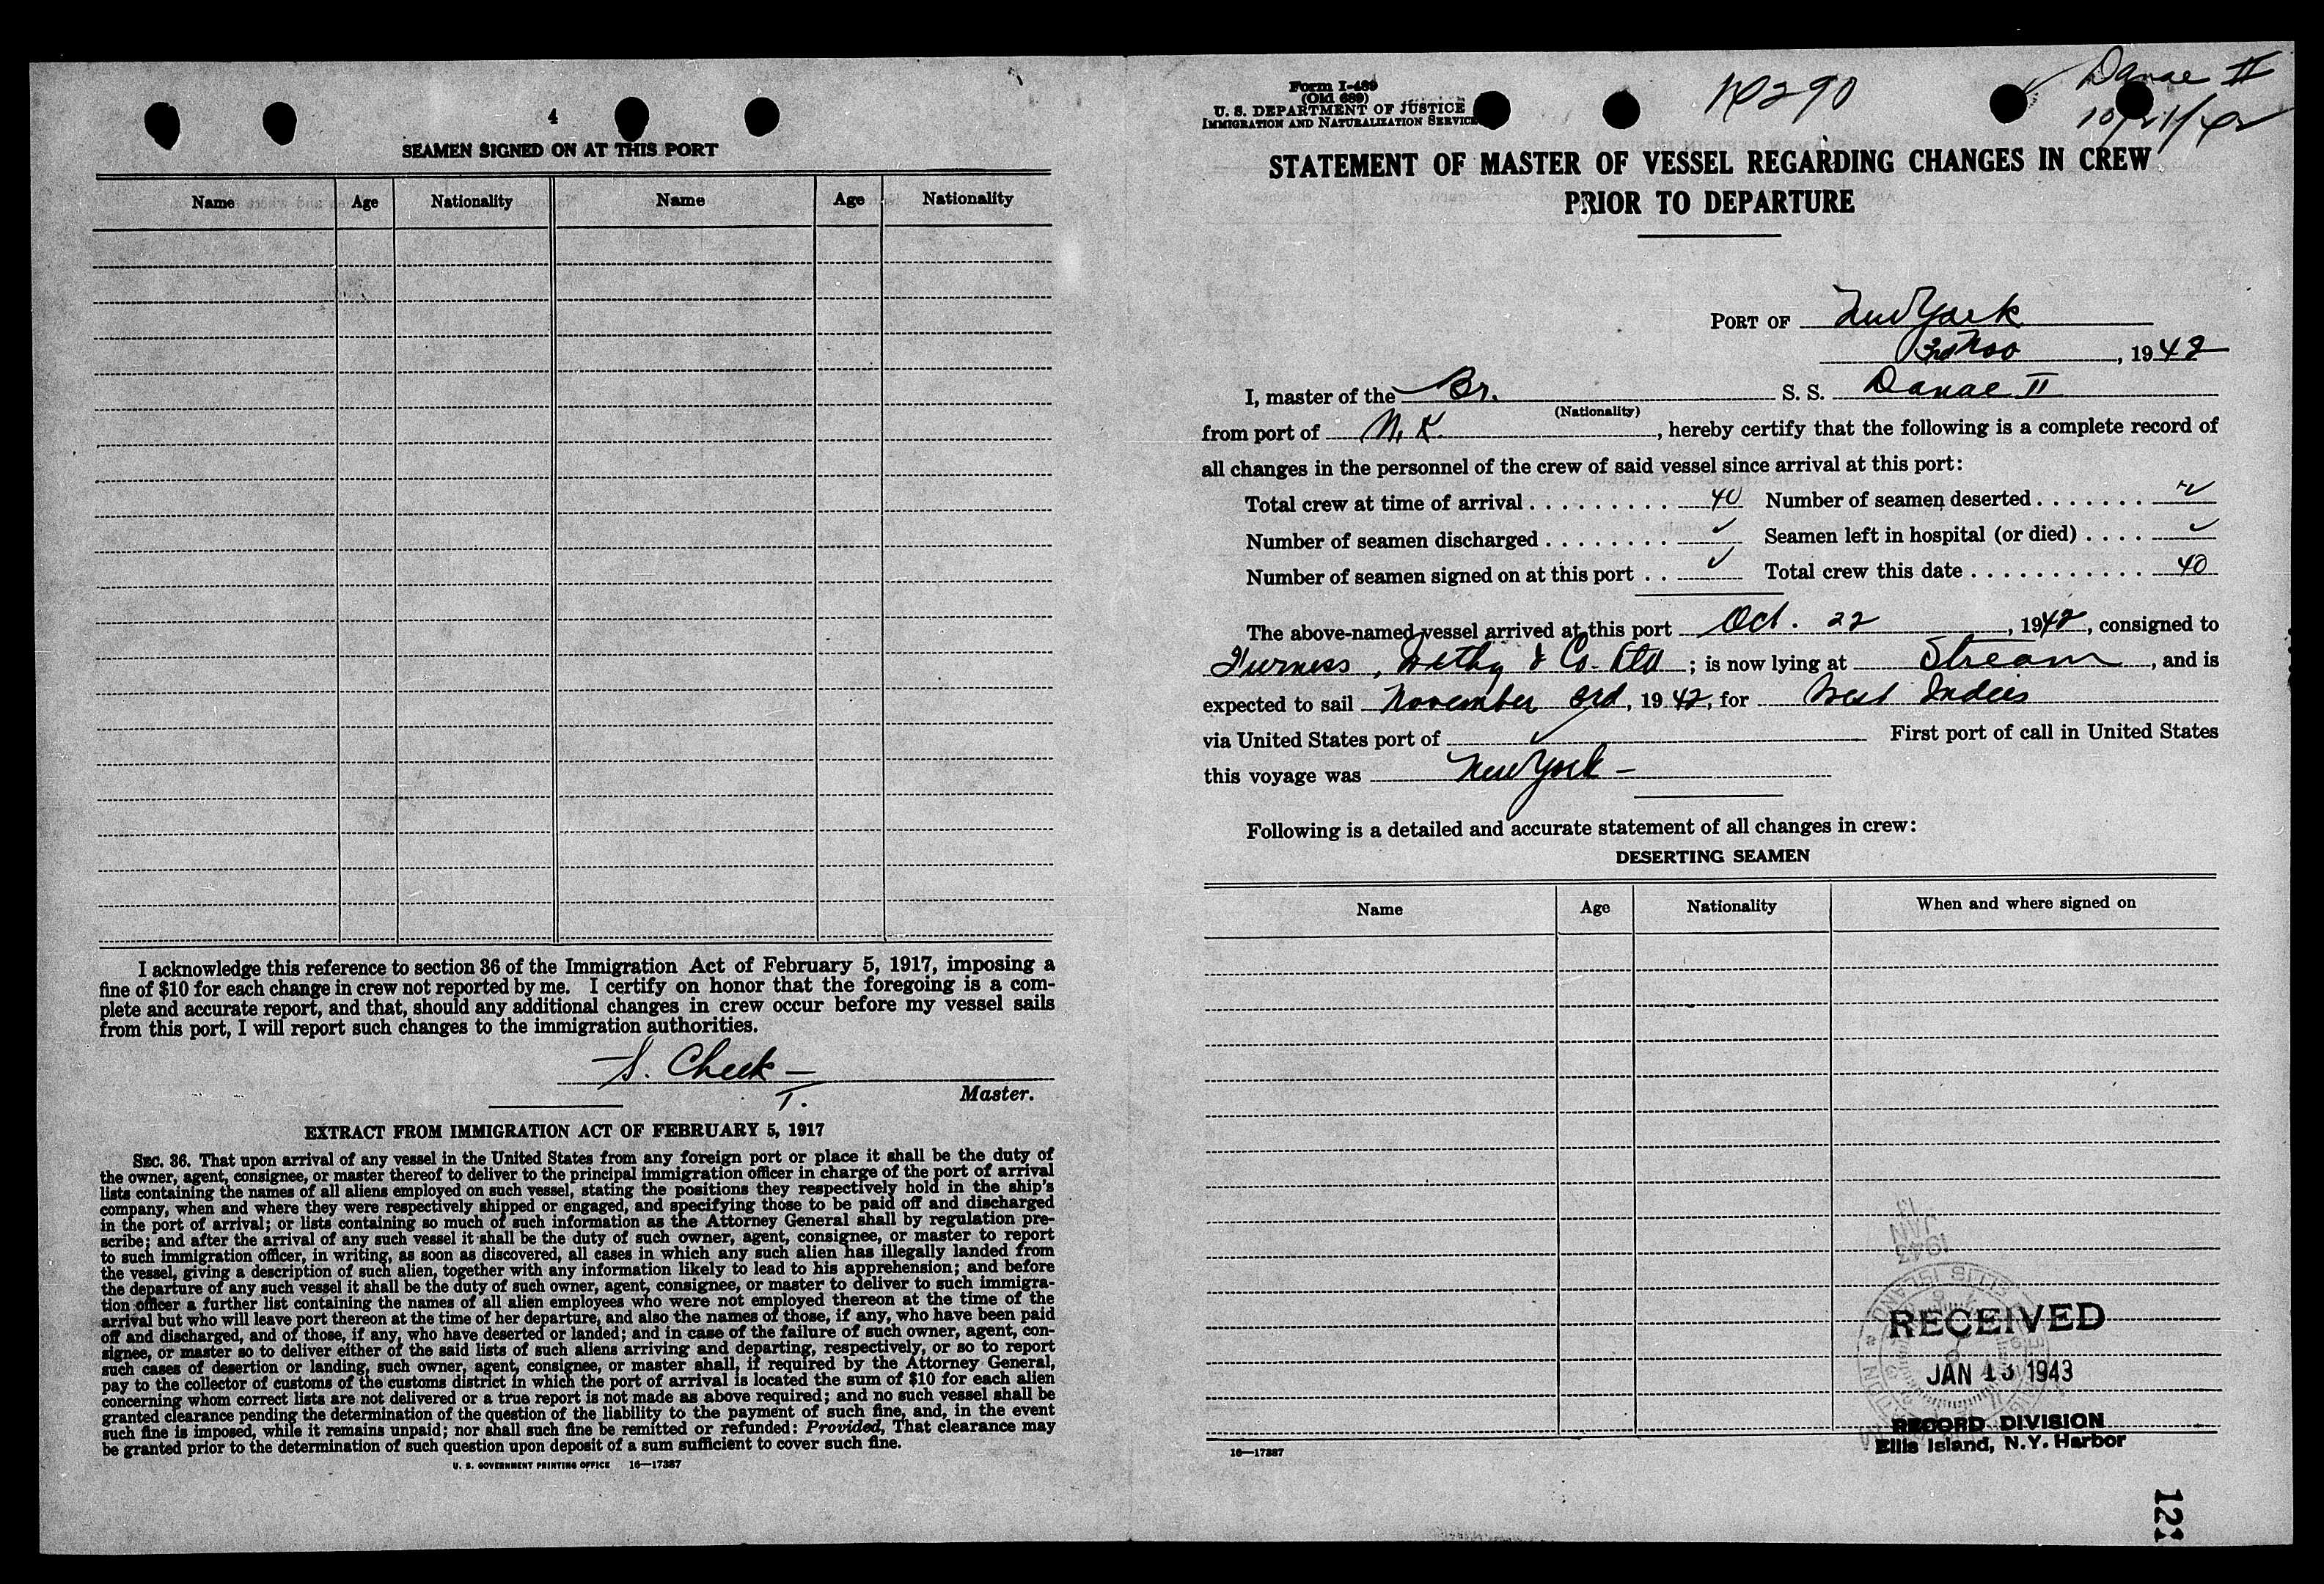 4
SEAMEN SIGNED ON AT THIS PORT
Name Age Nationality Name Age Nationality
I acknowledge this reference to section 36 of the Immigration Act of February 5, 1917, imposing a
fine of $10 for each change in crew not reported by me. I certify on honor that the foregoing is a com-
plete and accurate report, and that, should any additional changes in crew occur before my vessel sails
from this port, I will report such changes to the immigration authorities.
S. Cheek —
T. Master.
EXTRACT FROM IMMIGRATION ACT OF FEBRUARY 5, 1917
SEC. 36. That upon arrival of any vessel in the United States from any foreign port or place it shall be the duty of
the owner, agent, consignee, or master thereof to deliver to the principal immigration officer in charge of the port of arrival
lists containing the names of all aliens employed on such vessel, stating the positions they respectively hold in the ship's
company, when and where they were respectively shipped or engaged, and specifying those to be paid off and discharged
in the port of arrival; or lists containing so much of such information as the Attorney General shall by regulation pre-
scribe; and after the arrival of any such vessel it shall be the duty of such owner, agent, consignee, or master to report
to such immigration officer, in writing, as soon as discovered, all cases in which any such alien has illegally landed from
the vessel, giving a description of such alien, together with any information likely to lead to his apprehension; and before
the departure of any such vessel it shall be the duty of such owner, agent, consignee, or master to deliver to such immigra-
tion officer a further list containing the names of all alien employees who were not employed thereon at the time of the
arrival but who will leave port thereon at the time of her departure, and also the names of those, if any, who have been paid
off and discharged, and of those, if any, who have deserted or landed; and in case of the failure of such owner, agent, con-
signee, or master so to deliver either of the said lists of such aliens arriving and departing, respectively, or so to report
such cases of desertion or landing, such owner, agent, consignee, or master shall, if required by the Attorney General,
pay to the collector of customs of the customs district in which the port of arrival is located the sum of $10 for each alien
concerning whom correct lists are not delivered or a true report is not made as above required; and no such vessel shall be
granted clearance pending the determination of the question of the liability to the payment of such fine, and, in the event
such fine is imposed, while it remains unpaid; nor shall such fine be remitted or refunded: Provided, That clearance may
be granted prior to the determination of such question upon deposit of a sum sufficient to cover such fine.
U. S. GOVERNMENT PRINTING OFFICE 16—17387
Form I-489
(Old 689)
U. S. DEPARTMENT OF JUSTICE
IMMIGRATION AND NATURALIZATION SERVICE
Danae II
10/21/42
STATEMENT OF MASTER OF VESSEL REGARDING CHANGES IN CREW
PRIOR TO DEPARTURE
PORT OF New York
3rd Nov, 1942
I, master of the Br. S. S. Danae II
(Nationality)
from port of N. K., hereby certify that the following is a complete record of
all changes in the personnel of the crew of said vessel since arrival at this port:
Total crew at time of arrival 40 Number of seamen deserted ✓
Number of seamen discharged ✓ Seamen left in hospital (or died) ✓
Number of seamen signed on at this port ✓ Total crew this date 40
The above-named vessel arrived at this port Oct. 22, 1942, consigned to
Furness, Withy & Co. Ltd; is now lying at Stream, and is
expected to sail November 3rd, 1942, for West Indies
via United States port of ✓ First port of call in United States
this voyage was New York —
Following is a detailed and accurate statement of all changes in crew:
DESERTING SEAMEN
Name Age Nationality When and where signed on
13
JAN
1943
RECEIVED
JAN 13 1943
RECORD DIVISION
Ellis Island, N.Y. Harbor
16—17387
121